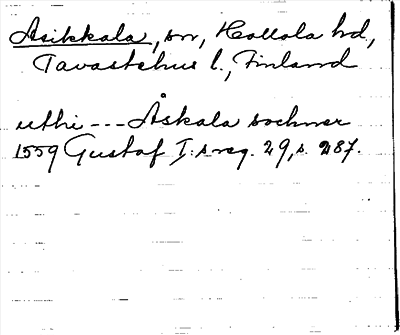 Asikkala, sn, Hollola hd,
Tavastehus l., Finland
uthi --- Åskala sochner
1559 Gustaf I:s reg. 29, s. 287.